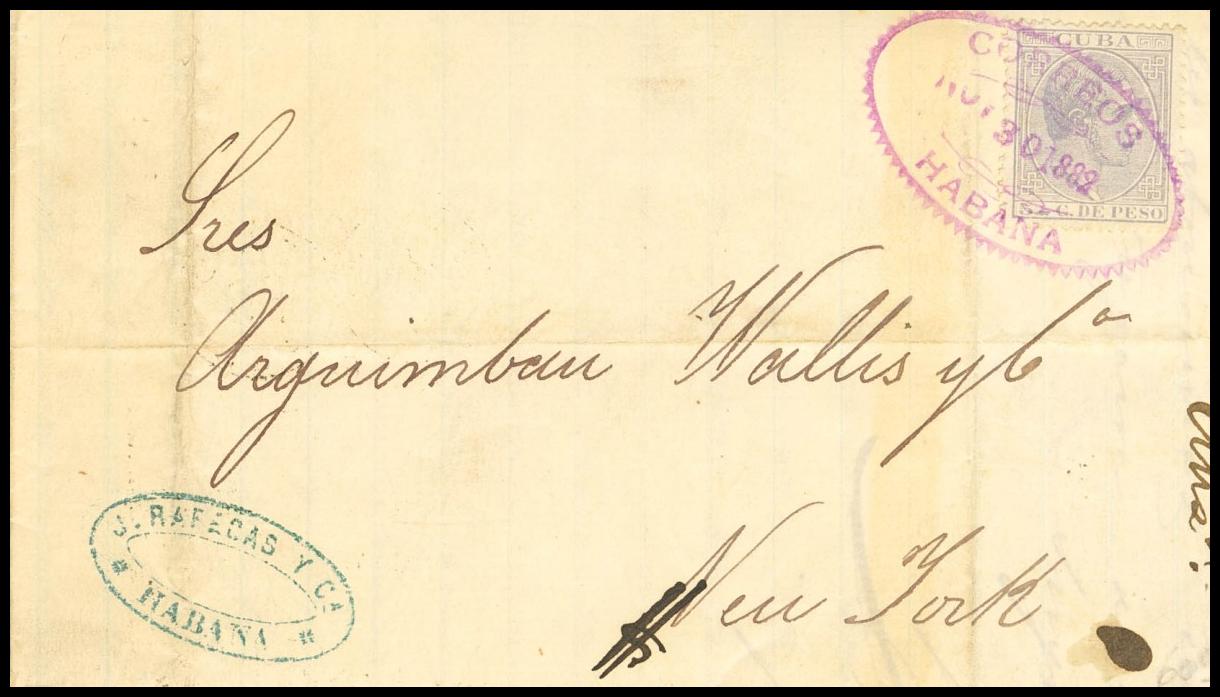 CUBA
CORREOS
NOV 30 1882
HABANA
5 C. DE PESO
Sres
Arguimbau Wallis y Cª
New York
J. RAFECAS Y CA
* HABANA *